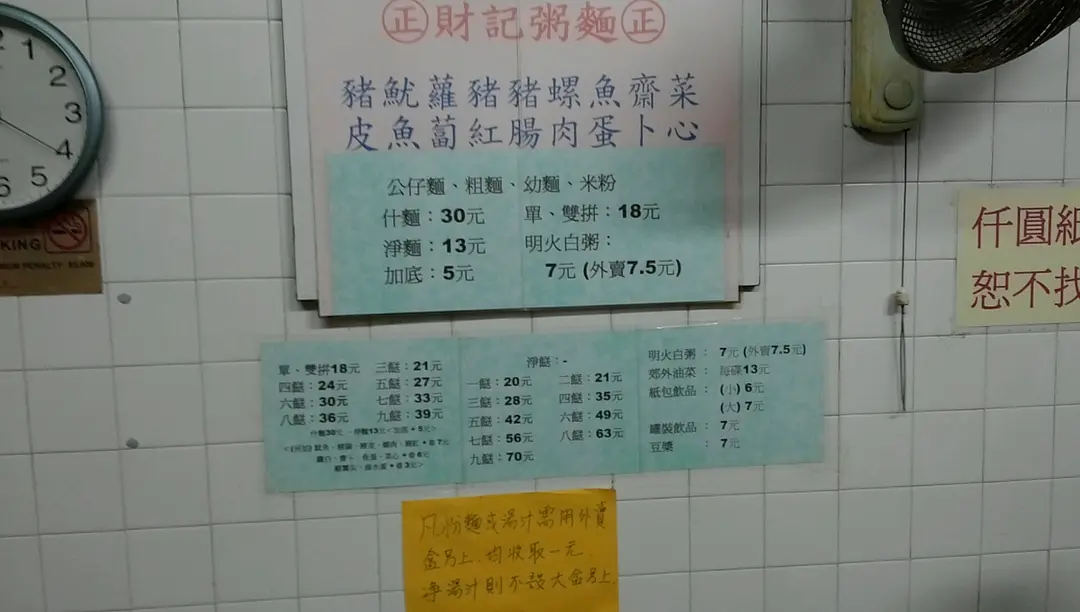 1
2
3
4
5
6
KING
㊣財記粥麵㊣
豬魷蘿豬豬螺魚齋菜
皮魚蔔紅腸肉蛋卜心
公仔麵、粗麵、幼麵、米粉
什麵：30元
單、雙拼：18元
淨麵：13元
明火白粥：
加底：5元
7元 (外賣7.5元)
仟圓紙
恕不找
單、雙拼18元
三餸：21元
四餸：24元
五餸：27元
六餸：30元
七餸：33元
八餸：36元
九餸：39元
什麵30元
淨餸：-
一餸：20元
二餸：21元
三餸：28元
四餸：35元
五餸：42元
六餸：49元
七餸：56元
八餸：63元
九餸：70元
明火白粥： 7元 (外賣7.5元)
郊外油菜： 每碟13元
紙包飲品： (小) 6元
(大) 7元
罐裝飲品： 7元
豆漿： 7元
凡粉麵或湯汁需用外賣
盒另上.均收取一元.
淨湯汁則不設大盒另上.